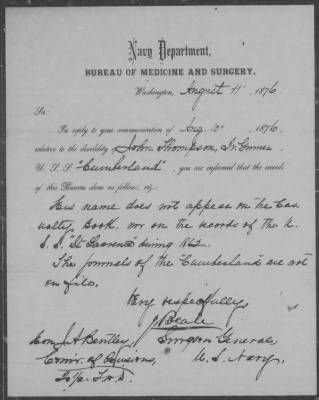 Navy Department,
BUREAU OF MEDICINE AND SURGERY.
Washington, August 11th 1876
Sir:
In reply to your communication of Aug. 10th 1876,
relative to the disability of John Thompson, Qr. Gunner
U. S. S. "Cumberland", you are informed that the records
of this Bureau show as follows, viz:
His name does not appear on the Cas-
ualty Book, nor on the records of the U.
S. S. "St Lawrence" during 1862.
The journals of the "Cumberland" are not
on file.
Very respectfully,
J Beale
Hon. J. A. Bentley, Surgeon General,
Comr. of Pensions, U. S. Navy.